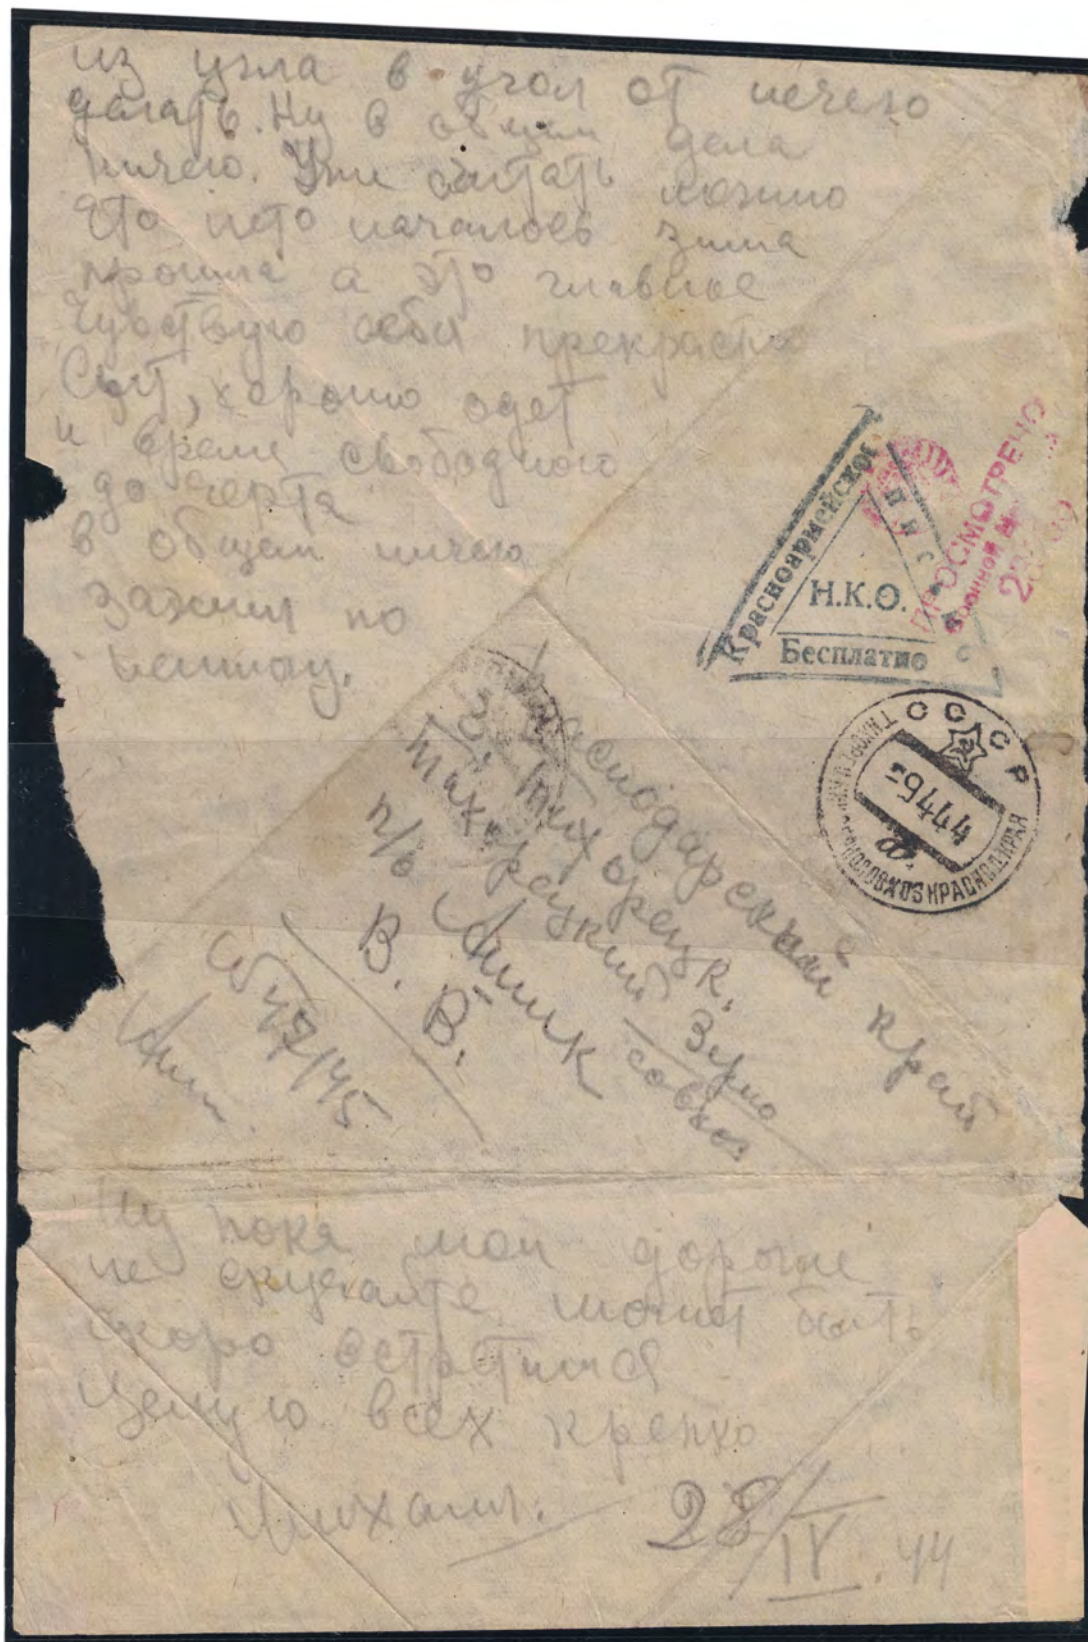 из угла в угол от нечего
делать. Ну в общем дела
ничего. Уже считать можно
что лето началось зима
прошла а это главное
Чувствую себя прекрасно
Сыт, хорошо одет
и время свободного
до черта
в общем ничего
зажил по
Красноармейское
пис
Н.К.О.
Бесплатно
ПРОСМОТРЕНО
Военной
СССР
9444
Краснодарский край
Тихорецк.
Тихорецкий Зерно
совхоз
п/о Аник
В. В.
Ну пока мои дорогие
не скучайте, может быть
скоро встретимся
Целую всех крепко
Михаил.
28/IV.44